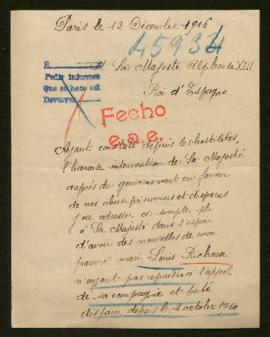 Paris le 12 Décembre 1916
45934
A
Sa Majesté Alphonse XIII
Pedir informes
Que se hace así
Devuelvo
Roi d'Espagne
Fecho
e.a.e.
Ayant constaté depuis les hostilités,
l'heureuse intervention de Sa Majesté
auprès du gouvernement en faveur
de nos chers prisonniers et disparus
j'ose adresser ce simple pli
à Sa Majesté dans l'espoir
d'avoir des nouvelles de mon
pauvre mari Louis
n'ayant pas répondu à l'appel
de sa compagnie et porté
disparu depuis le 2 octobre 1914